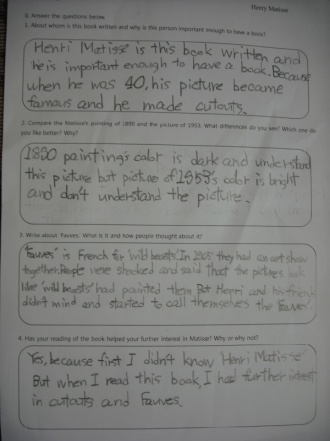 Henry Matisse
4. Answer the questions below.
1. About whom is this book written and why is this person important enough to have a book?
Henri Matisse is this book written and
he is important enough to have a book. Because
when he was 40, his picture became
famous and he made cutouts.
2. Compare the Matisse's painting of 1890 and the picture of 1953. What differences do you see? Which one do
you like better? Why?
1890 painting's color is dark and understand
this picture but picture of 1953's color is bright
and don't understand the picture.
3. Write about 'Fauves'. What is it and how people thought about it?
"Fauves" is French for 'wild beasts'. In 1905 they had an art show
together. People were shocked and said that the pictures look
like 'wild beasts' had painted them. But Henri and his friends
didn't mind and started to call themselves the 'Fauves'.
4. Has your reading of the book helped your further interest in Matisse? Why or why not?
Yes, because first I didn't know Henri Matisse
But when I read this book, I had further interest
in cutouts and Fauves.